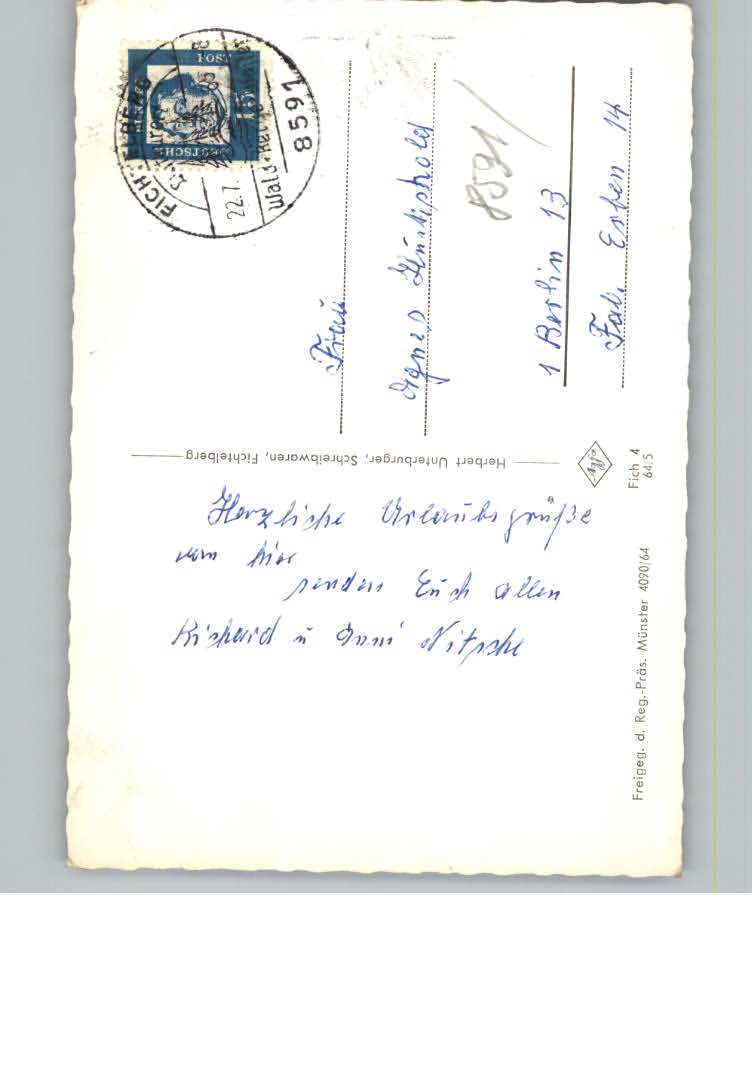 Herzliche Urlaubsgrüße
von hier
senden Euch allen
Richard u Anni Nitsche
Herbert Unterburger, Schreibwaren, Fichtelberg
Agfa
Fich 4
64/5
Freigeg. d. Reg.-Präs. Münster 4090/64
Frau
Agnes
1 Berlin 13
Fab. Erben 14
8591/
8591
FICHTELBERG
22.7.
DEUTSCHE
POST
15